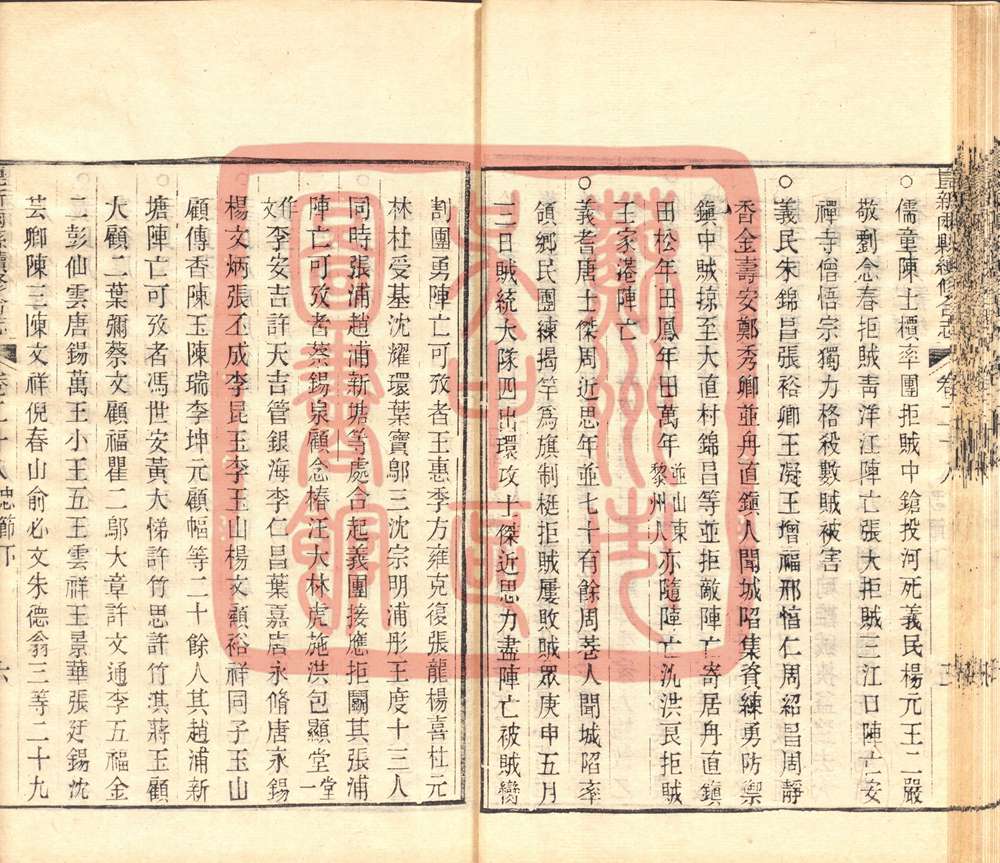 儒童陳士櫝率團拒賊中鎗投河死義民楊元王二嚴
敬劉念春拒賊靑洋江陣亡張大拒賊三江口陣亡安
禪寺僧悟宗獨力格殺數賊被害
○義民朱錦昌張裕卿王凝王增福邢愷仁周紹昌周靜
香金壽安鄭秀卿並甪直鎭人聞城陷集資練勇防禦
鎭中賊掠至大直村錦昌等並拒敵陣亡寄居甪直鎭
田松年田鳳年田萬年並山東黎州人亦隨陣亡沈洪良拒賊
王家港陣亡
○義耆唐士傑周近思年並七十有餘周巷人聞城陷率
領鄉民團練揭竿爲旗制梃拒賊屢敗賊眾庚申五月
三日賊統大隊四出環攻士傑近思力盡陣亡被賊臠
割團勇陣亡可攷者王惠季方雍克復張龍楊喜杜元
林杜受基沈耀環葉寶鄔三沈宗明浦彤王度十三人
同時張浦趙浦新塘等處合起義團接應拒鬬其張浦
陣亡可攷者蔡錫泉顧念椿汪大林虎施洪包顯堂堂一
作文李安吉許天吉管銀海李仁昌葉嘉唐永脩唐永錫
楊文炳張丕成李昆玉李玉山楊文顧裕祥同子玉山
顧傳香陳玉陳瑞李坤元顧幅等二十餘人其趙浦新
塘陣亡可攷者馮世安黃大悌許竹思許竹淇蔣玉顧
大顧二葉彌蔡文顧福瞿二鄔大章許文通李五福金
二彭仙雲唐錫萬王小王五王雲祥王景華張廷錫沈
芸卿陳三陳文祥倪春山俞必文朱德翁三等二十九